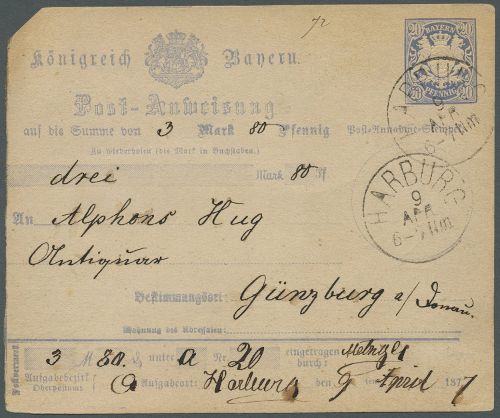 72
20 BAYERN 20
20 PFENNIG 20
Königreich Bayern.
HARBURG
9
APR
6-7 Nm
Post-Anweisung
auf die Summe von 3 Mark 80 Pfennig Post-Annahme-Stempel
Zu wiederholen (die Mark in Buchstaben.)
drei Mark 80 Pf
HARBURG
9
APR
6-7 Nm
An Alphons Hug
Antiquar
Bestimmungsort: Günzburg a/Donau.
Wohnung des Adressaten:
Postvermerk
3 M 80 Pf unter a Nr. 20 eingetragen durch: Metzger
Aufgabebezirk Oberpostamt a Aufgabeort: Harburg 9 April 1877